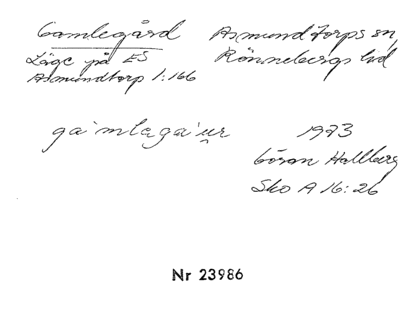 Gamlegård Asmundtorps sn,
Läge på ES Rönnebergs hd
Asmundtorp 1:166
ga`mlega´ur 1973
Göran Hallberg
Sko A 16:26
Nr 23986